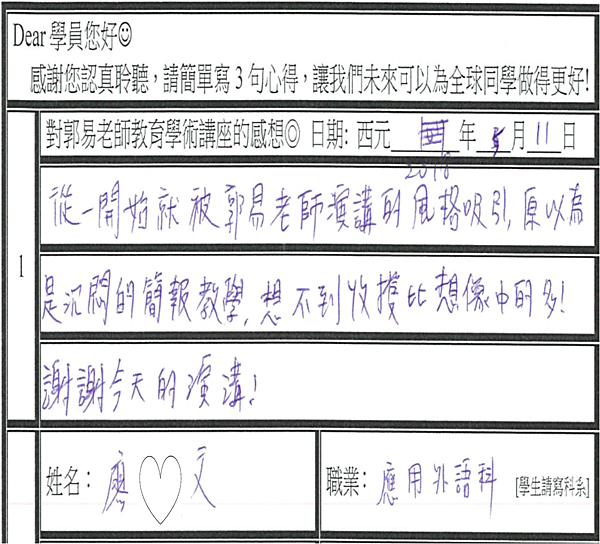 Dear 學員您好☺
感謝您認真聆聽，請簡單寫 3 句心得，讓我們未來可以為全球同學做得更好!
對郭易老師教育學術講座的感想◎ 日期: 西元 2018 年 5 月 11 日
1
從一開始就被郭易老師演講的風格吸引，原以為
是沉悶的簡報教學，想不到收獲比想像中的多！
謝謝今天的演講！
姓名： 廖♡文 職業： 應用外語科 [學生請寫科系]